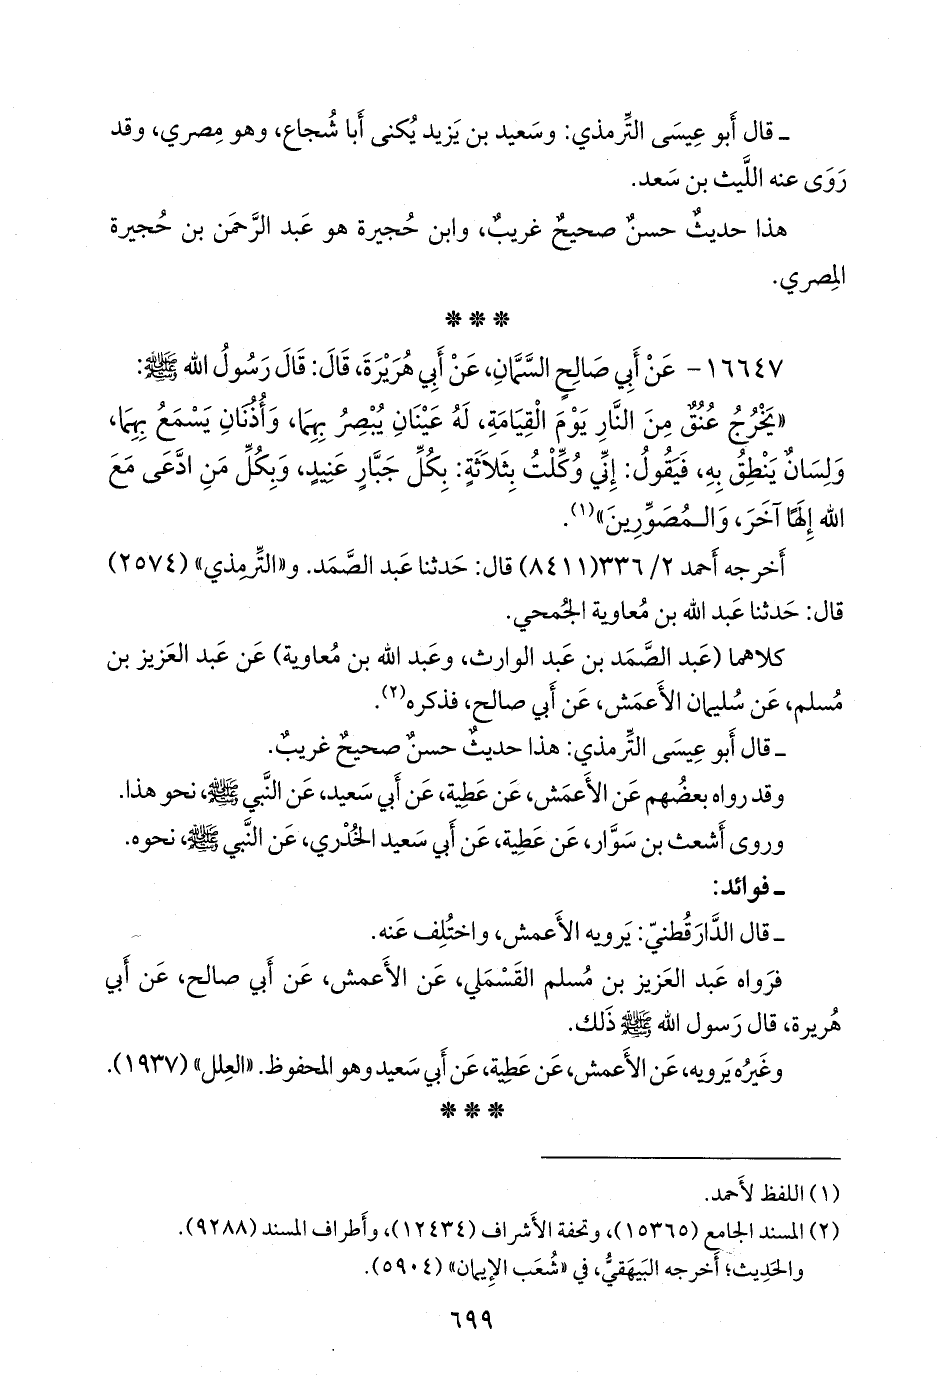 ـ قال أَبو عِيسَى التِّرمذي: وسَعيد بن يَزيد يُكنى أَبا شُجاع، وهو مِصري، وقد
رَوَى عنه اللَّيث بن سَعد.
هذا حديثٌ حسنٌ صحيحٌ غريبٌ، وابن حُجيرة هو عَبد الرَّحمَن بن حُجيرة
المِصري.
* * *
١٦٦٤٧- عَنْ أَبِي صَالِحٍ السَّمَّانِ، عَنْ أَبِي هُرَيْرَةَ، قَالَ: قَالَ رَسُولُ الله ﷺ:
«يَخْرُجُ عُنُقٌ مِنَ النَّارِ يَوْمَ الْقِيَامَةِ، لَهُ عَيْنَانِ يُبْصِرُ بِهِمَا، وَأُذُنَانِ يَسْمَعُ بِهِمَا،
وَلِسَانٌ يَنْطِقُ بِهِ، فَيَقُولُ: إِنِّي وُكِّلْتُ بِثَلَاثَةٍ: بِكُلِّ جَبَّارٍ عَنِيدٍ، وَبِكُلِّ مَنِ ادَّعَى مَعَ
الله إِلَهًا آخَرَ، وَالْمُصَوِّرِينَ»(١).
أَخرجه أَحمد ٢/ ٣٣٦(٨٤١١) قال: حَدثنا عَبد الصَّمَد. و«التِّرمِذي» (٢٥٧٤)
قال: حَدثنا عَبد الله بن مُعاوية الجُمحي.
كلاهما (عَبد الصَّمَد بن عَبد الوارث، وعَبد الله بن مُعاوية) عَن عَبد العَزيز بن
مُسلم، عَن سُليمان الأَعمَش، عَن أَبي صالح، فذكره(٢).
ـ قال أَبو عِيسَى التِّرمذي: هذا حديثٌ حسنٌ صحيحٌ غريبٌ.
وقد رواه بعضُهم عَن الأَعمَش، عَن عَطية، عَن أَبي سَعيد، عَن النَّبي ﷺ، نحو هذا.
وروى أَشعث بن سَوَّار، عَن عَطية، عَن أَبي سَعيد الخُدْري، عَن النَّبي ﷺ، نحوه.
ـ فوائد:
ـ قال الدَّارَقُطنيّ: يَرويه الأَعمش، واختُلِف عَنه.
فرَواه عَبد العَزيز بن مُسلم القَسْمَلي، عَن الأَعمش، عَن أَبي صالح، عَن أَبي
هُريرة، قال رَسول الله ﷺ ذَلك.
وغَيرُه يَرويه، عَن الأَعمش، عَن عَطِية، عَن أَبي سَعيد وهو المَحفوظ. «العِلل» (١٩٣٧).
* * *
(١) اللفظ لأَحمد.
(٢) المسند الجامع (١٥٣٦٥)، وتحفة الأَشراف (١٢٤٣٤)، وأَطراف المسند (٩٢٨٨).
والحَدِيث؛ أَخرجه البَيهَقيُّ، في «شُعَب الإِيمان» (٥٩٠٤).
٦٩٩